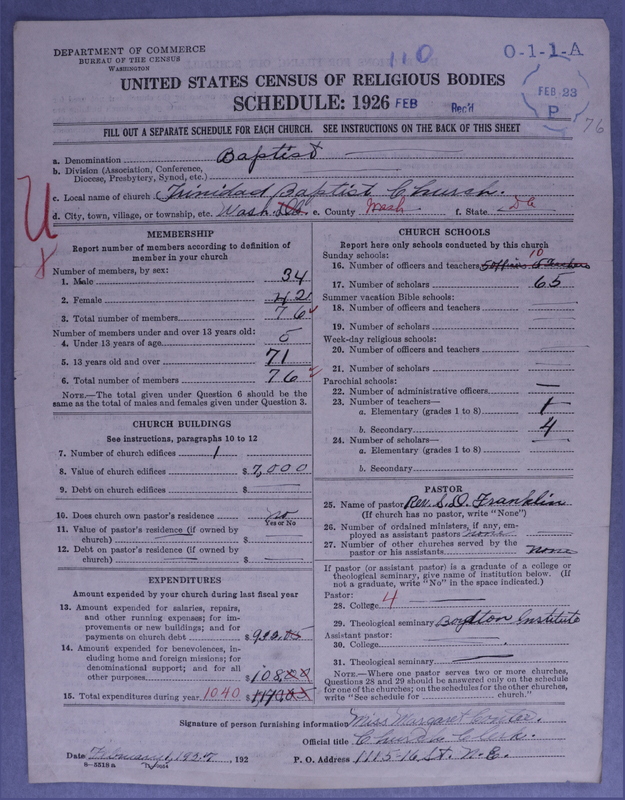 DEPARTMENT OF COMMERCE
BUREAU OF THE CENSUS
WASHINGTON
110
O-1-1-A
UNITED STATES CENSUS OF RELIGIOUS BODIES
SCHEDULE: 1926
FEB Rec'd
FEB 23
P
76
FILL OUT A SEPARATE SCHEDULE FOR EACH CHURCH. SEE INSTRUCTIONS ON THE BACK OF THIS SHEET
a. Denomination Baptist
b. Division (Association, Conference,
Diocese, Presbytery, Synod, etc.)
c. Local name of church Trinidad Baptist Church.
d. City, town, village, or township, etc. Wash. e. County Wash f. State DC
MEMBERSHIP
Report number of members according to definition of
member in your church
Number of members, by sex:
1. Male 34
2. Female 42
3. Total number of members 76
Number of members under and over 13 years old:
4. Under 13 years of age 5
5. 13 years old and over 71
6. Total number of members 76
NOTE.—The total given under Question 6 should be
same as the total of males and females given under Question 3.
CHURCH BUILDINGS
See instructions, paragraphs 10 to 12
7. Number of church edifices 1
8. Value of church edifices $7,000
9. Debt on church edifices $
10. Does church own pastor's residence No
Yes or No
11. Value of pastor's residence (if owned by
church) $
12. Debt on pastor's residence (if owned by
church) $
EXPENDITURES
Amount expended by your church during last fiscal year
13. Amount expended for salaries, repairs,
and other running expenses; for im-
provements or new buildings; and for
payments on church debt $
14. Amount expended for benevolences, in-
cluding home and foreign missions; for
denominational support; and for all
other purposes $108.00
15. Total expenditures during year 1040 $
CHURCH SCHOOLS
Report here only schools conducted by this church
Sunday schools:
16. Number of officers and teachers 10
17. Number of scholars 65
Summer vacation Bible schools:
18. Number of officers and teachers
19. Number of scholars
Week-day religious schools:
20. Number of officers and teachers
21. Number of scholars
Parochial schools:
22. Number of administrative officers
23. Number of teachers—
a. Elementary (grades 1 to 8) 1
b. Secondary 4
24. Number of scholars—
a. Elementary (grades 1 to 8)
b. Secondary
PASTOR
25. Name of pastor Rev. S. D. Franklin
(If church has no pastor, write "None")
26. Number of ordained ministers, if any, em-
ployed as assistant pastors none
27. Number of other churches served by the
pastor or his assistants none
If pastor (or assistant pastor) is a graduate of a college or
theological seminary, give name of institution below. (If
not a graduate, write "No" in the space indicated.)
Pastor:
28. College 4
29. Theological seminary Boydton Institute
Assistant pastor:
30. College
31. Theological seminary
NOTE.—Where one pastor serves two or more churches,
Questions 28 and 29 should be answered only on the schedule
for one of the churches; on the schedules for the other churches,
write "See schedule for church."
Signature of person furnishing information Miss Margaret
Official title Church Clerk.
Date February 1, 1927, 192
P. O. Address 1115-16 St. N.E.
8-5518a